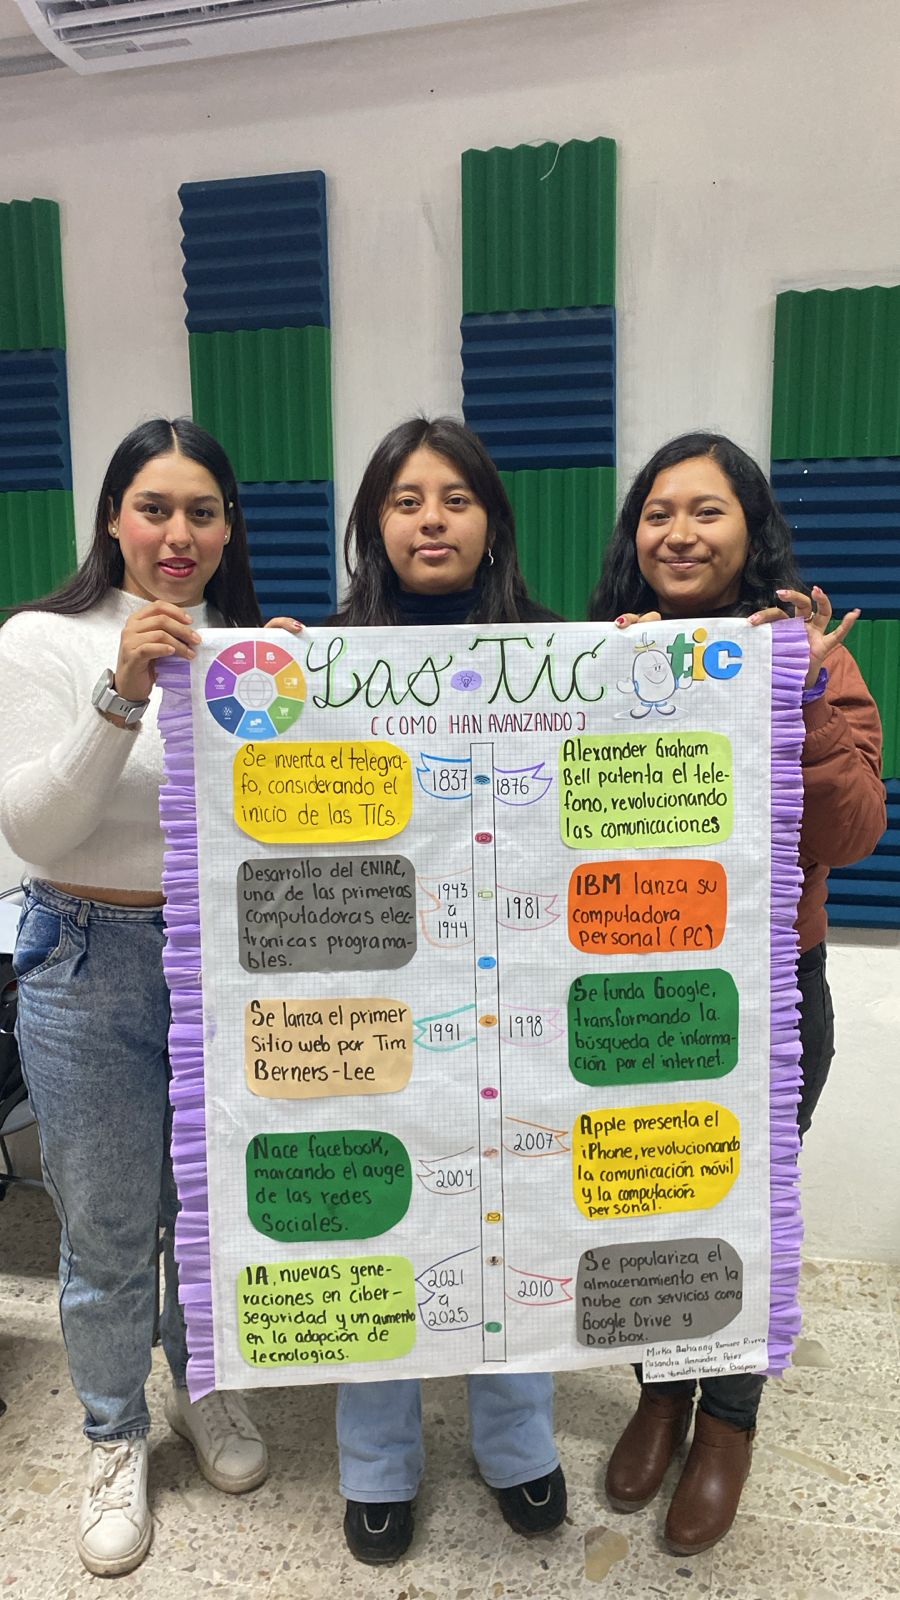 Las Tic
tic
(COMO HAN AVANZANDO)
Se inventa el telegra-
fo, considerando el
inicio de las TICs.
1837
1876
Alexander Graham
Bell patenta el tele-
fono, revolucionando
las comunicaciones
Desarrollo del ENIAC,
una de las primeras
computadoras elec-
tronicas programa-
bles.
1943
a
1944
1981
IBM lanza su
computadora
personal (PC)
Se lanza el primer
Sitio web por Tim
Berners-Lee
1991
1998
Se funda Google,
transformando la
búsqueda de informa-
ción por el internet.
Nace facebook,
marcando el auge
de las redes
Sociales.
2004
2007
Apple presenta el
iPhone, revolucionando
la comunicación móvil
y la computación
personal.
IA, nuevas gene-
raciones en ciber-
seguridad y un aumento
en la adopción de
tecnologias.
2021
a
2025
2010
Se populariza el
almacenamiento en la
nube con servicios como
Google Drive y
Dopbox.
Mirka Ramirez Rivera
Casandra Hernández Pérez